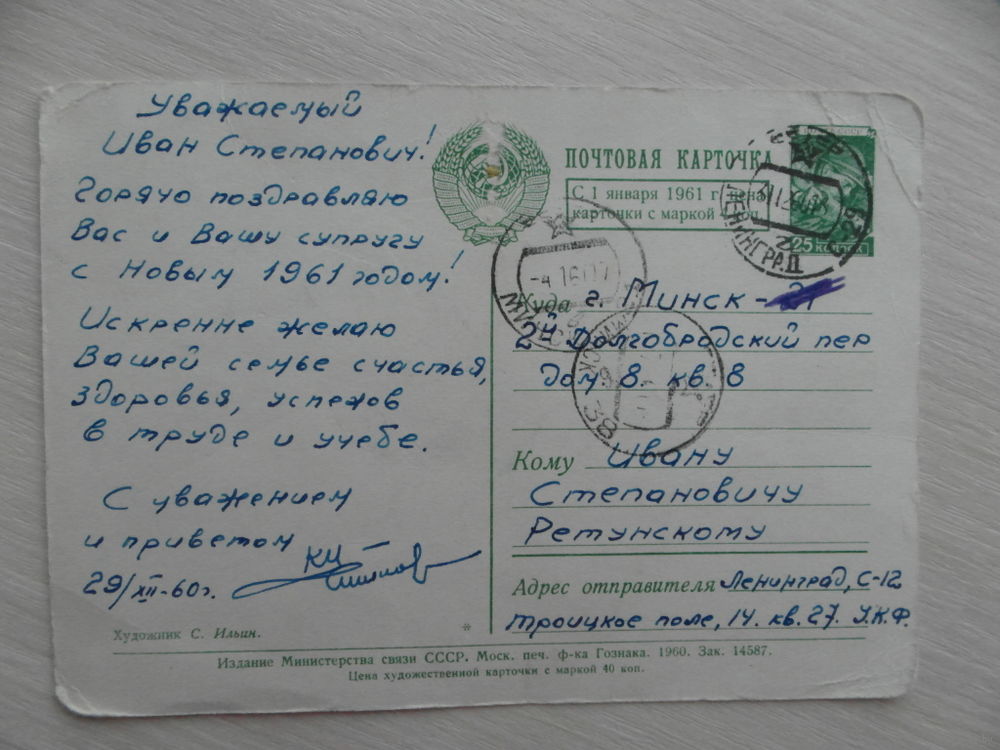 Уважаемый
Иван Степанович!
Горячо поздравляю
Вас и Вашу супругу
с Новым 1961 годом!
Искренне желаю
Вашей семье счастья,
здоровья, успехов
в труде и учебе.
С уважением
и приветом
29/XII-60г.
Художник С. Ильин.
ПОЧТОВАЯ КАРТОЧКА
С 1 января 1961 г. цена
карточки с маркой коп.
25 КОПЕЕК
ЛЕНИНГРАД
Куда г. Минск-21
2й Долгобродский пер
дом. 8. кв. 8
МИНСК
МИНСК 38
Кому Ивану
Степановичу
Ретунскому
Адрес отправителя Ленинград, С-12
Троицкое поле, 14. кв. 27. У.К.Ф.
Издание Министерства связи СССР. Моск. печ. ф-ка Гознака. 1960. Зак. 14587.
Цена художественной карточки с маркой 40 коп.